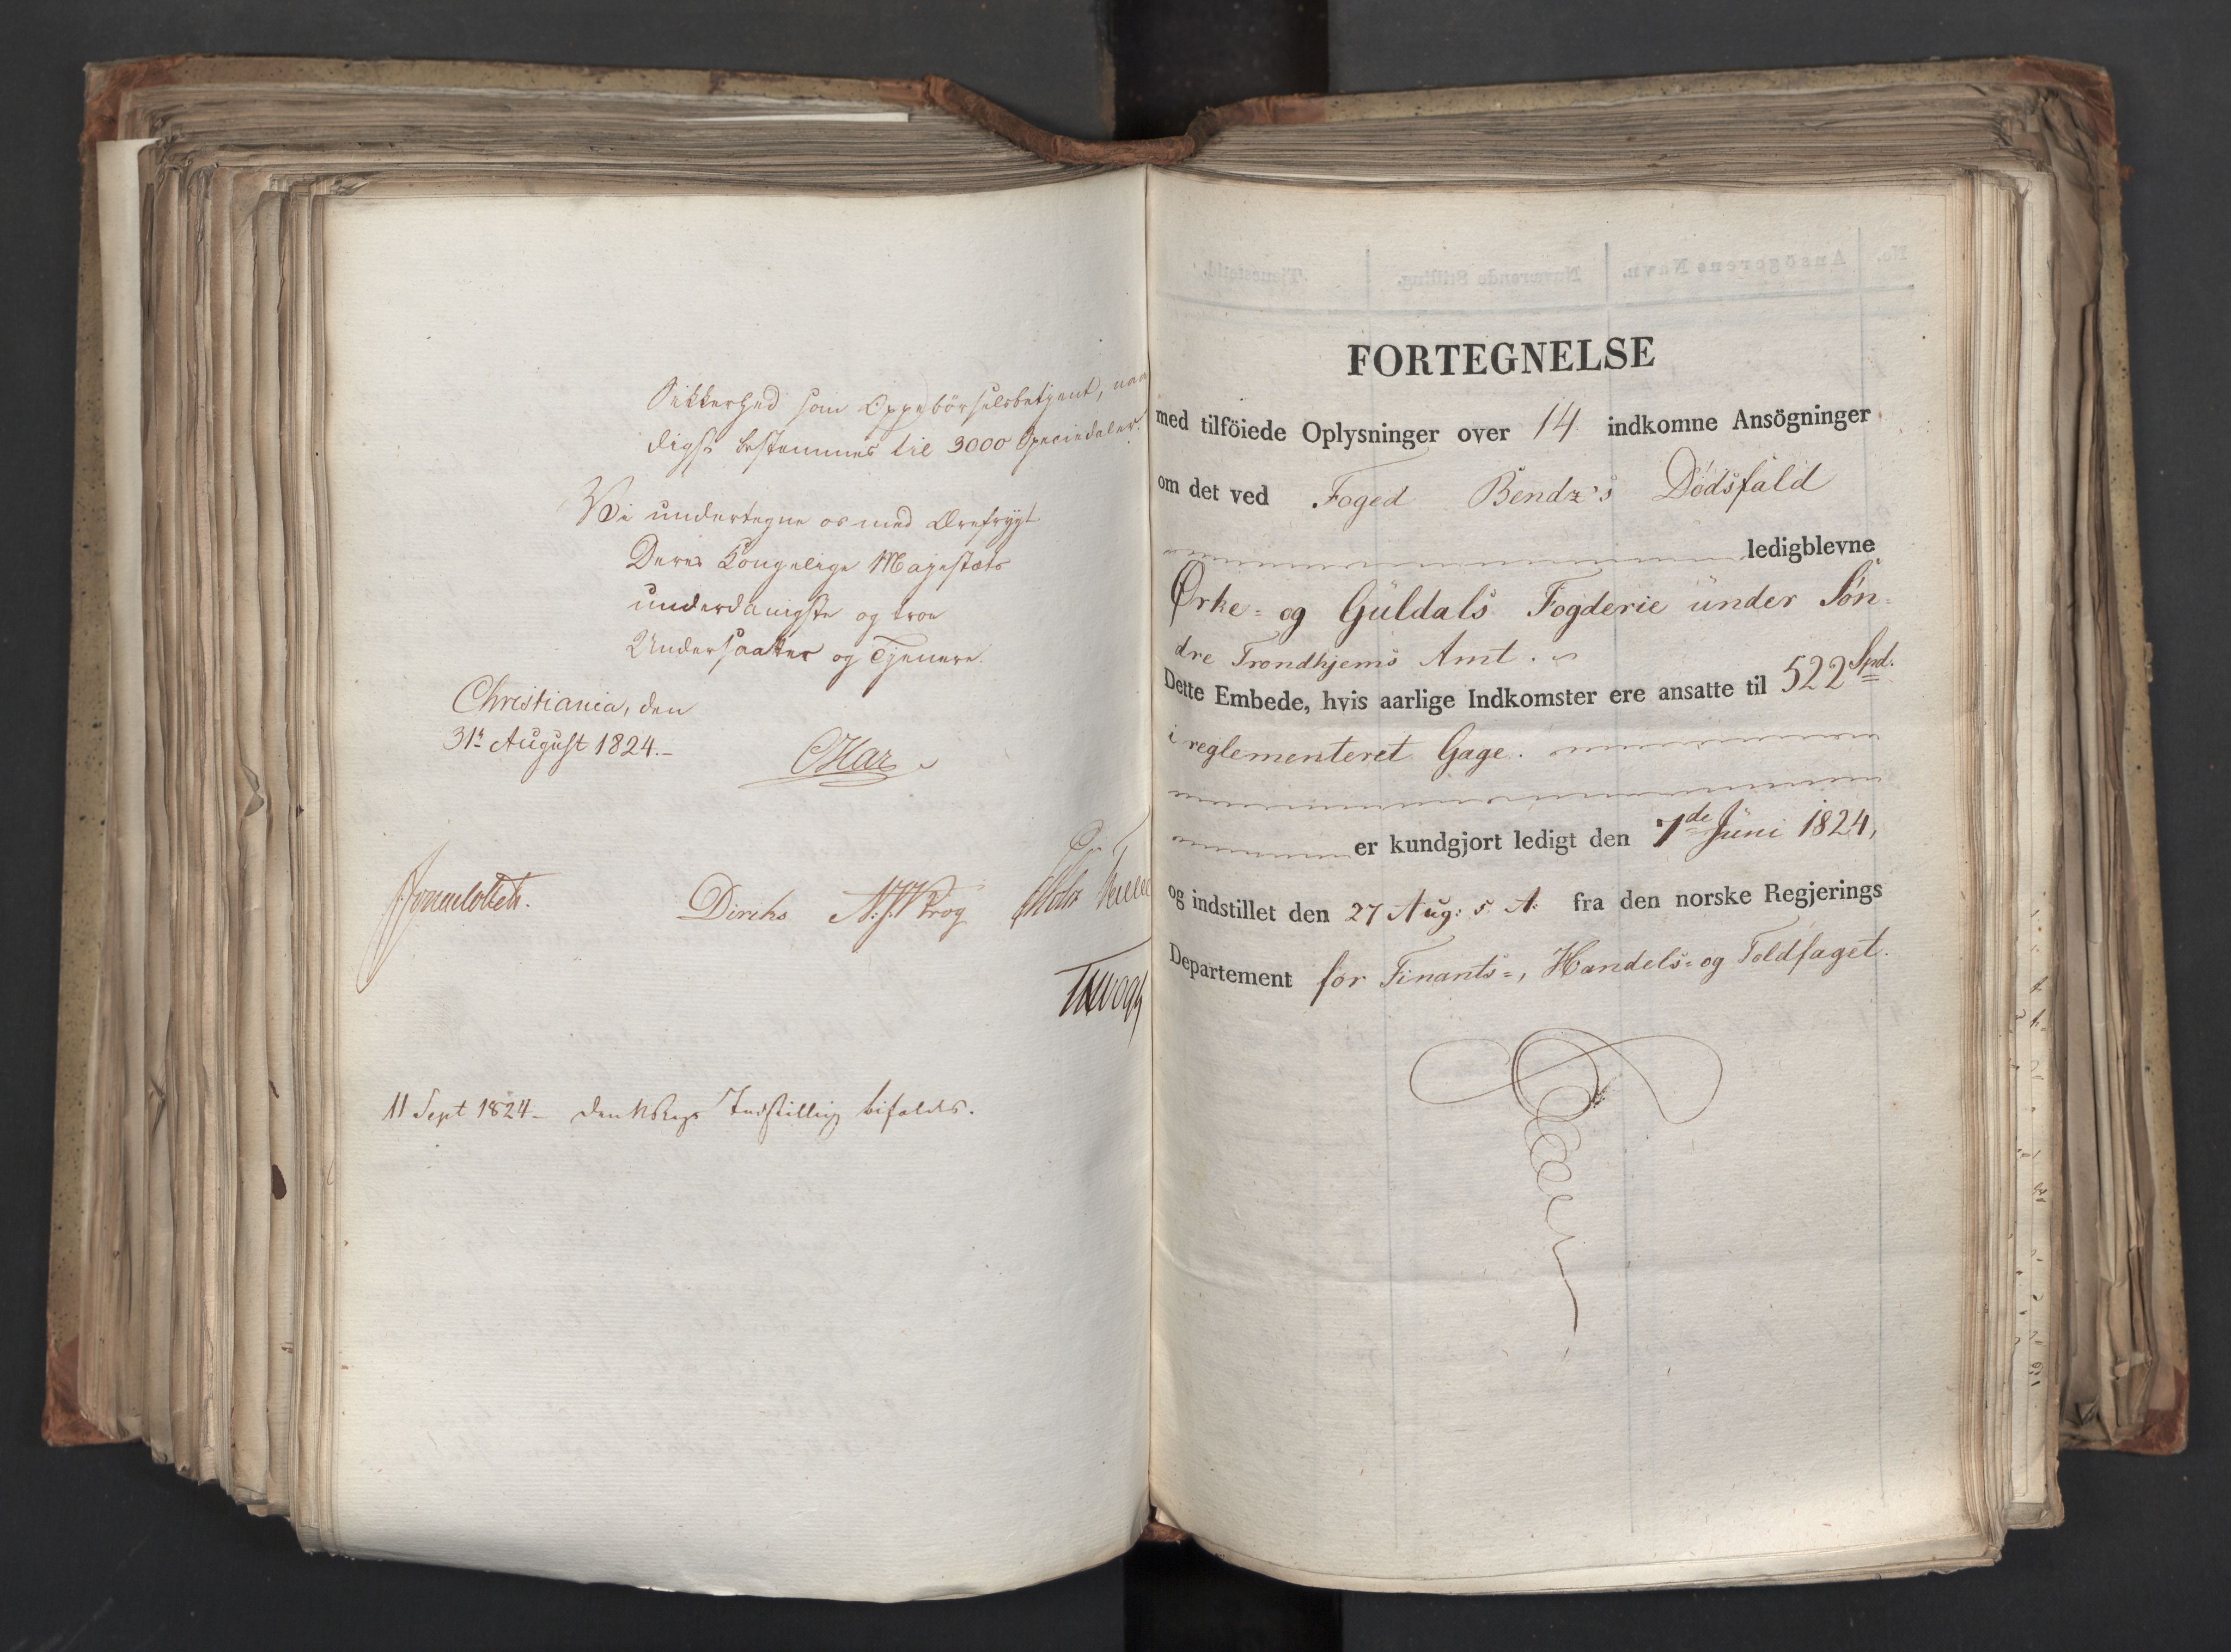 Sikkerhed som Oppebörselsbetjent, naa
digst bestemmes til 3000 Speciedaler.
Vi undertegne os med Ærefrygt
Deres Kongelige Majestæts
underdanigste og troe
Undersaatter og Tjenere.
Christiania, den
31te August 1824.-
Diriks N.J.Krog
11 Sept 1824 - den Indstilling bifaldes.
No. Ansögerens Navn. Nuværende Stilling. Tjenestetid.
FORTEGNELSE
med tilföiede Oplysninger over 14 indkomne Ansögninger
om det ved Foged Bendz's Dödsfald
ledigblevne
Ørke- og Guldals Fogderie under Søn-
dre Trondhjems Amt.
Dette Embede, hvis aarlige Indkomster ere ansatte til 522 Spd.
i reglementeret Gage.
er kundgjort ledigt den 7de Juni 1824,
og indstillet den 27 Aug: s. A. fra den norske Regjerings
Departement for Finants-, Handels- og Toldfaget.